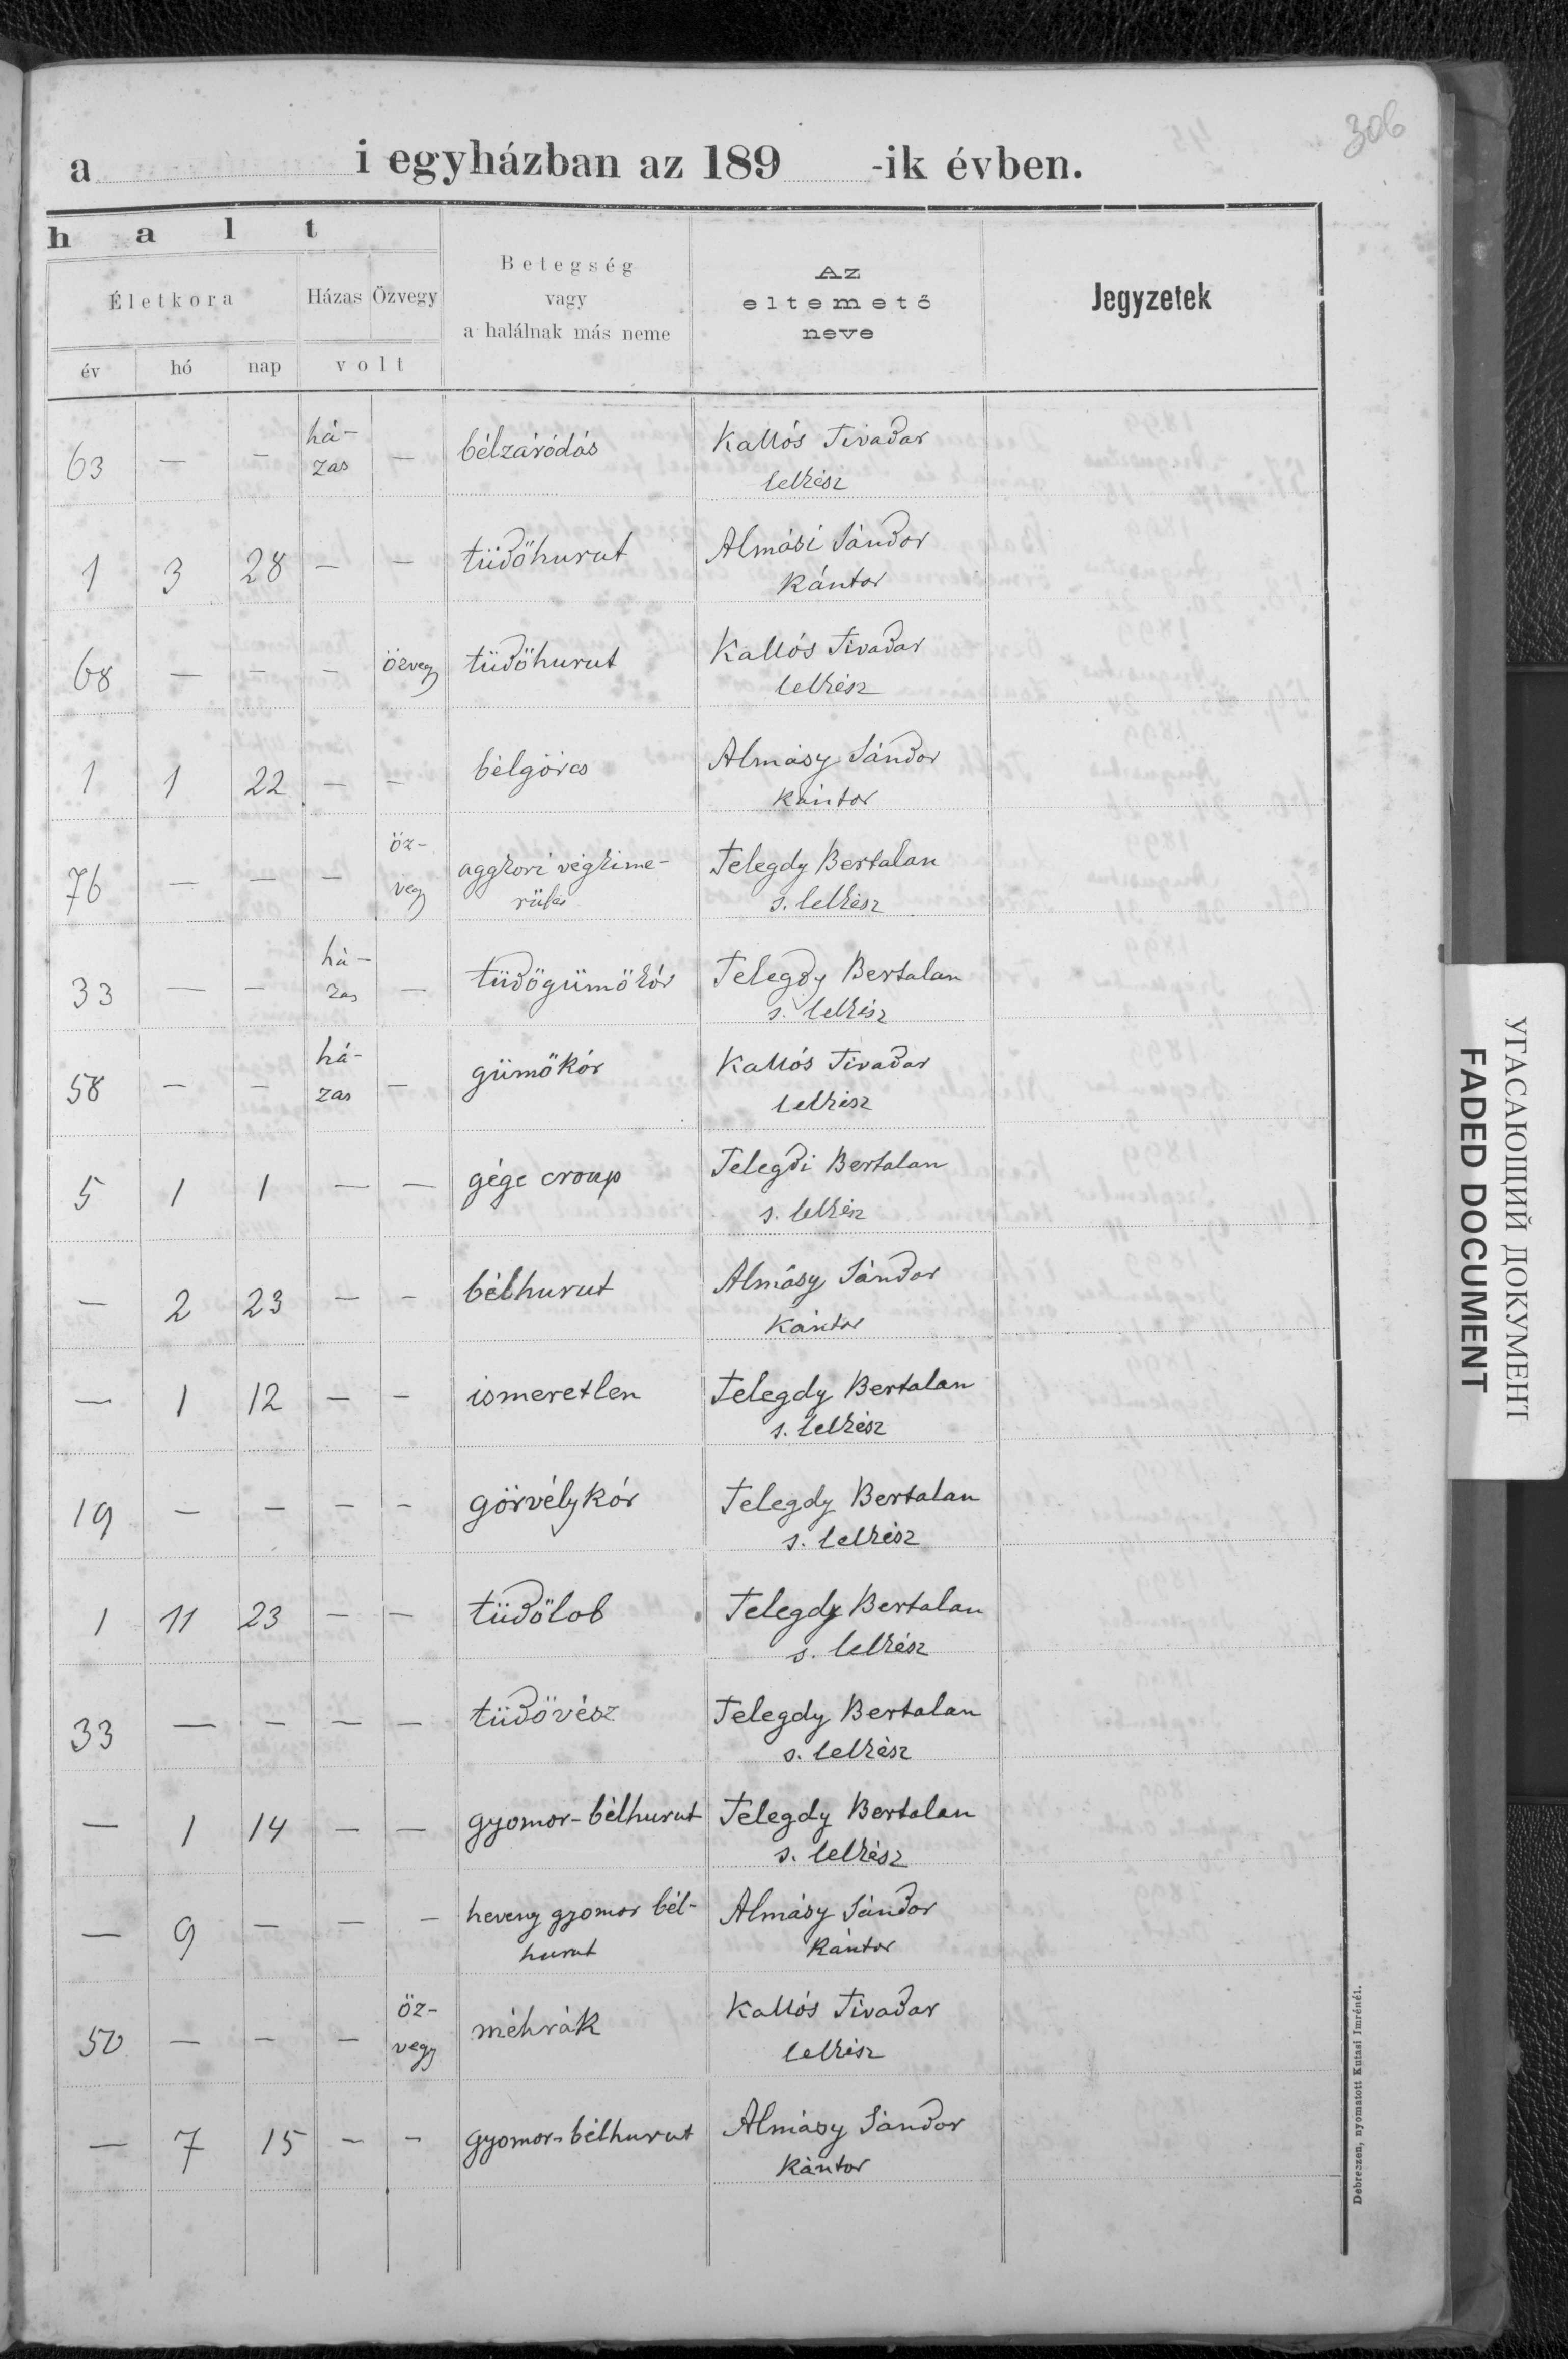 306
a i egyházban az 189 -ik évben.
halt
Életkora Házas Özvegy Betegség vagy a halálnak más neme Az eltemető neve Jegyzetek
év hó nap volt
63 — — há- — bélzáródás Kallós Tivadar
zas lelkész
1 3 28 — — tüdőhurut Almási Sándor
kántor
68 — — — özvegy tüdőhurut Kallós Tivadar
lelkész
1 1 22 — — bélgörcs Almásy Sándor
kántor
76 — — — öz- aggkori végkime- Telegdy Bertalan
vegy rülés s. lelkész
33 — — há- — tüdőgümőkór Telegdy Bertalan
zas s. lelkész
58 — — há- — gümőkór Kallós Tivadar
zas lelkész
5 1 1 — — gége croup Telegdi Bertalan
s. lelkész
— 2 23 — — bélhurut Almásy Sándor
Kántor
— 1 12 — — ismeretlen Telegdy Bertalan
s. lelkész
19 — — — — görvélykór Telegdy Bertalan
s. lelkész
1 11 23 — — tüdőlob Telegdy Bertalan
s. lelkész
33 — — — — tüdővész Telegdy Bertalan
s. lelkész
— 1 14 — — gyomor-bélhurut Telegdy Bertalan
s. lelkész
— 9 — — — heveny gyomor bél- Almásy Sándor
hurut Kántor
50 — — — öz- méhrák Kallós Tivadar
vegy lelkész
— 7 15 — — gyomor-bélhurut Almásy Sándor
Kántor
Debreczen, nyomatott Kutasi Imrénél.
УГАСАЮЩИЙ ДОКУМЕНТ
FADED DOCUMENT